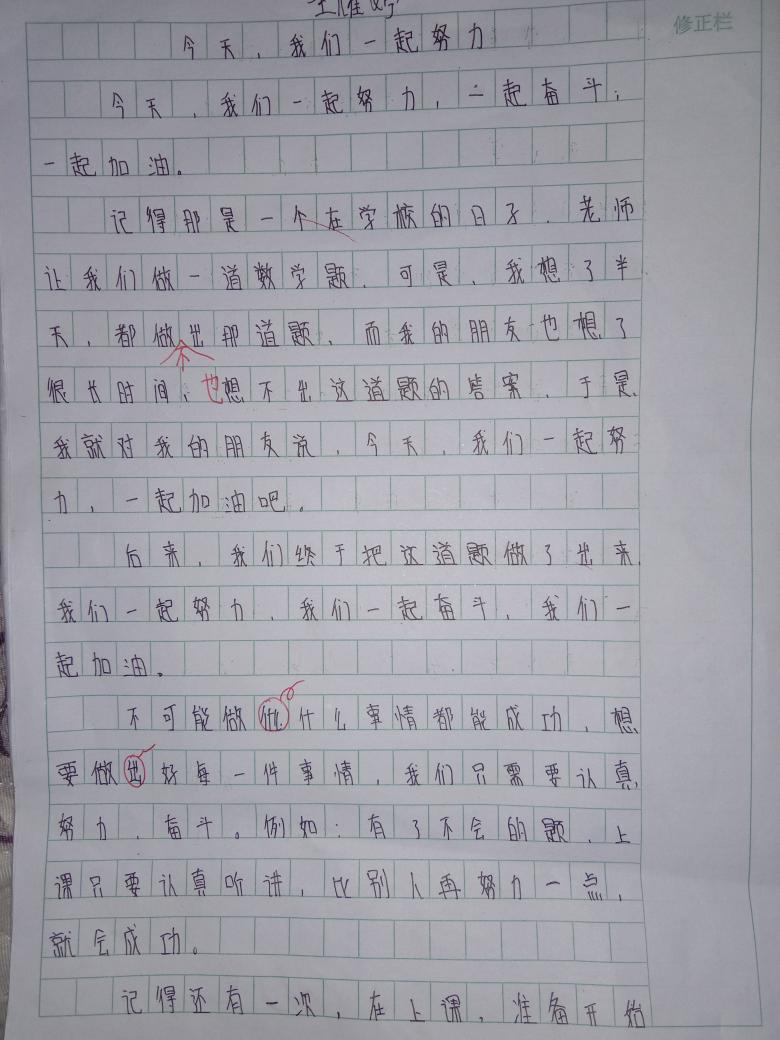 修正栏
今天，我们一起努力
今天，我们一起努力，一起奋斗，
一起加油。
记得那是一个在学校的日子，老师
让我们做一道数学题，可是，我想了半
天，都做出那道题，而我的朋友也想了
不
很长时间，也想不出这道题的答案，于是
我就对我的朋友说，今天，我们一起努
力，一起加油吧。
后来，我们终于把这道题做了出来
我们一起努力，我们一起奋斗，我们一
起加油。
不可能做什什么事情都能成功，想
要做出好每一件事情，我们只需要认真
努力，奋斗。例如：有了不会的题，上
课只要认真听讲，比别人再努力一点，
就会成功。
记得还有一次，在上课，准备开始